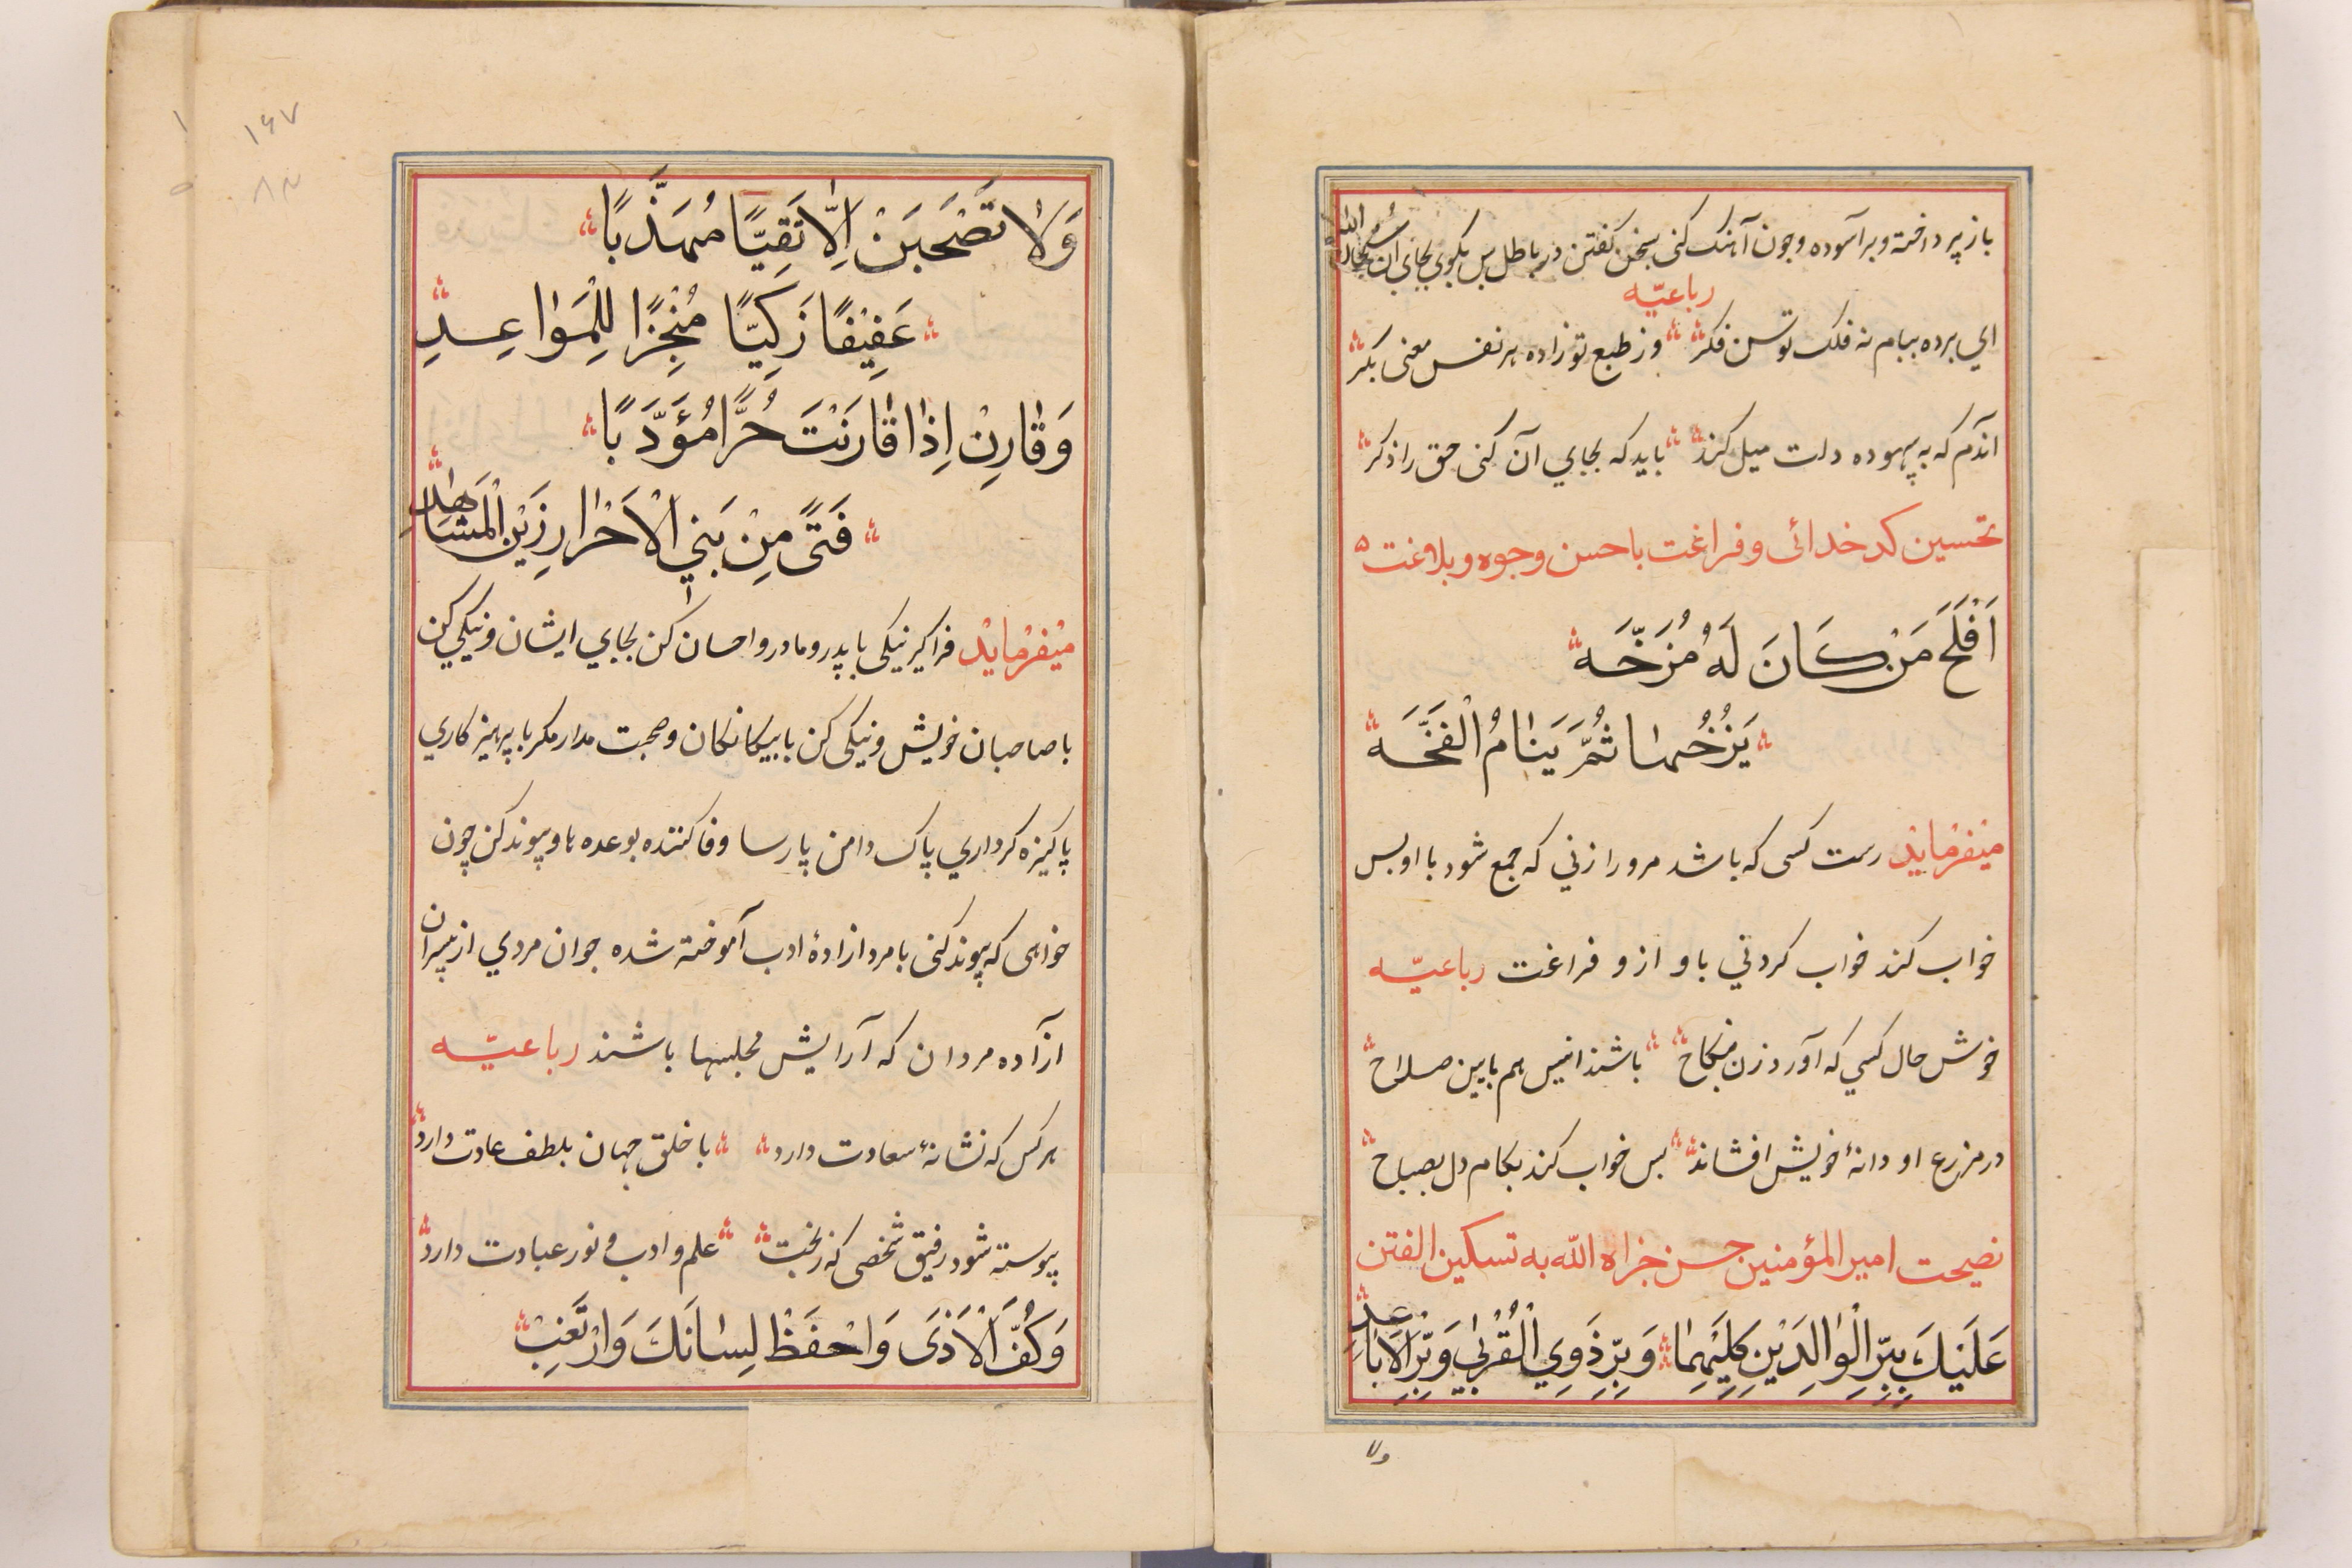 باز پرداخته و برآسوده و چون آهنک کنی بسخن کفتن در باطل پس بکوی بجای آن سبحان الله
رباعیّه
ای برده ببام نه فلک توسن فکر وز طبع تو زاده هر نفس معنی بکر
آندم که به بیهوده دلت میل کند باید که بجای آن کنی حق را ذکر
تحسین کدخدائی و فراغت باحسن وجوه و بلاغت
اَفْلَحَ مَنْ كَانَ لَهُ مُزَخَّه
يَزُخُّهَا ثُمَّ يَنَامُ الْفَخَّه
میفرماید رست کسی که باشد مرو را زنی که جمع شود با او پس
خواب کند خواب کردنی با و از و فراغت رباعیّه
خوش حال کسی که آورد زن بنکاح باشند انیس هم بآیین صلاح
در مزرع او دانۀ خویش افشاند پس خواب کند بکام دل بصباح
نصیحت امیر المؤمنین حسن جزاه الله به تسکین الفتن
عَلَيْكَ بِبِرِّ الْوَالِدَيْنِ كِلَيْهِمَا وَبِرِّ ذَوِي الْقُرْبٰى وَبِرِّ الْاَبَاعِدِ
ولا
١٤٧
وَلَا تَصْحَبَنْ اِلَّا تَقِيًّا مُهَذَّبًا
عَفِيْفًا زَكِيًّا مُنْجِزًا لِلْمَوَاعِدِ
وَقَارِنْ اِذَا قَارَنْتَ حُرًّا مُؤَدَّبًا
فَتًى مِنْ بَنِي الْاَحْرَارِ زَيْنَ الْمَشَاهِدِ
میفرماید فراکیر نیکی با پدر و مادر و احسان کن بجای ایشان و نیکی کن
با صاحبان خویش و نیکی کن با بیکانکان و صحبت مدار مکر با پرهیزکاری
پاکیزه کرداری پاک دامن پارسا وفا کننده بوعده ها و پیوند کن چون
خواهی که پیوند کنی با مرد ازادۀ ادب آموخته شده جوان مردی از پسران
آزاده مردان که آرایش مجلسها باشند رباعیّه
هر کس که نشانۀ سعادت دارد با خلق جهان بلطف عادت دارد
پیوسته شود رفیق شخصی کز بخت علم و ادب و نور عبادت دارد
وَكُفَّ الْاَذٰى وَاحْفَظْ لِسَانَكَ وَارْتَغِبْ